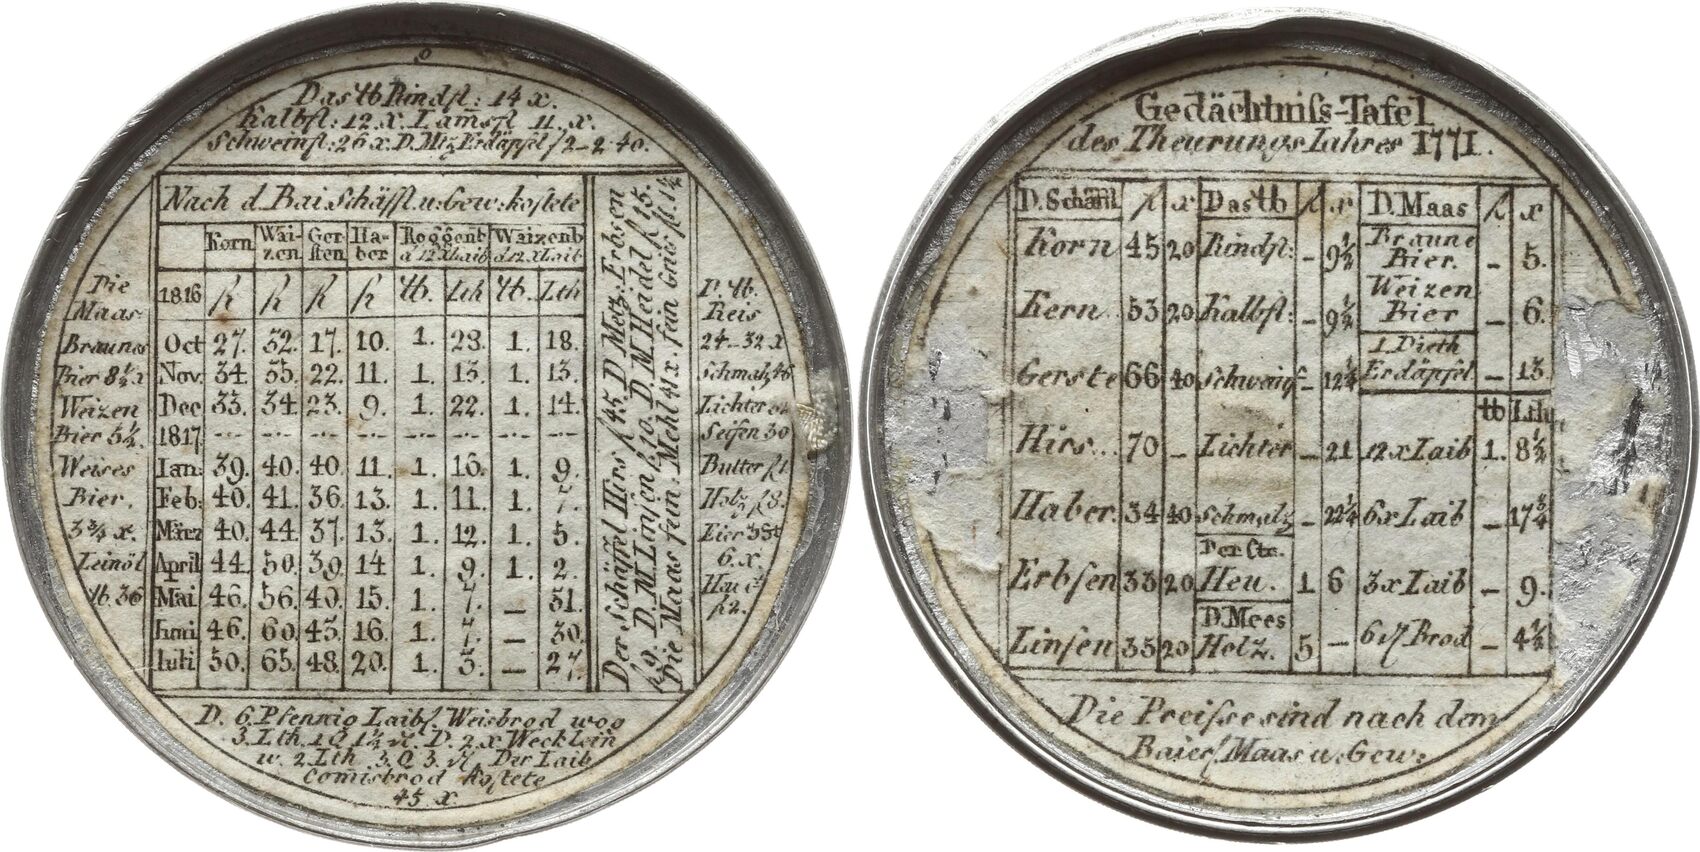 Das ℔ Rindfl: 14 x.
Kalbfl: 12 x. Lamsfl 11. x.
Schweinfl: 26 x. D. Mtz Erdäpfel f 2_2 40.
Nach d. Bai Schäffl u: Gew: kostete
Korn Wai-zen Ger-sten Ha-ber Roggenb á 12 x Laib Waizenb d. 12 x Laib
1816 fl fl fl fl ℔. Lth ℔. Lth
Oct 27. 32. 17. 10. 1. 28. 1. 18.
Nov. 34. 35. 22. 11. 1. 15. 1. 13.
Dec 33. 34. 23. 9. 1. 22. 1. 14.
1817
Jan: 39. 40. 40. 11. 1. 16. 1. 9.
Feb: 40. 41. 36. 13. 1. 11. 1. 7.
März 40. 44. 37. 13. 1. 12. 1. 5.
April 44. 50. 39. 14 1. 9. 1. 2.
Mai 46. 56. 40. 15. 1. 7. _ 31.
Juni 46. 60. 45. 16. 1. 7. _ 30.
Juli 50. 65. 48. 20. 1. 3. _ 27.
Die
Maas
Braunes
Bier 8½ x
Weizen
Bier 5½.
Weises
Bier.
3¾ x.
Leinöl
℔. 36
Der Schäffel Hirs f 45. D. Metz. Erbsen
f 9. D. M. Linsen f 10. D. M. Headel f 15.
Die Maas fein. Mehl 41 x. fein Gries fl 1½
D. ℔.
Reis
24–32 x
Schmalz 46
Lichter
Seifen 30
Butter fl 1
Holz fl 8.
Eier 3 St
6. x.
Heu Ct
fl 2.
D. 6. Pfennig Laibl. Weisbrod wog
3. Lth. 1 Q 1½ ₰. D. 2 x Wecklein
w. 2. Lth 3. Q 3. ₰. Der Laib
Comisbrod kostete
45 x
Gedächtniss-Tafel
des Theurungs Jahres 1771.
D. Schäffl fl x Das ℔ fl x D. Maas fl x
Korn 45 20 Rindfl: _ 9½ Braune Bier. _ 5.
Kern 53 20 Kalbfl: _ 9½ Weizen Bier _ 6.
Gerste 66 40 Schweinf _ 12¼ 1. Vieth Erdäpfel _ 13
℔ Lth
Hirs.. 70 _ Lichter _ 21 12 x Laib 1. 8½
Haber. 34 40 Schmalz _ 22¼ 6 x Laib _ 17¾
Der Ctr. Heu. 1 6 3 x Laib _ 9.
Erbsen 33 20
Linsen 35 20 D. Mees Holz. 5 _ 6 ₰ Brod _ 4½
Die Preisse sind nach dem
Baier Maas u: Gew: